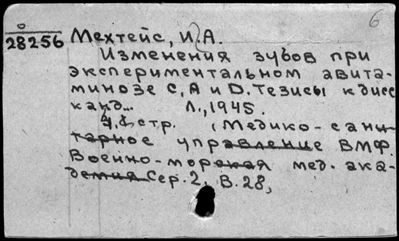 6
28256 Мехтейс, И. А.
Изменения зубов при
экспериментальном авита-
минозе C, A и D. Тезисы к дисс
канд... Л., 1945.
4, стр. (Медико-сани-
тарное управление ВМФ.
Военно-морская мед. ака-
демия Сер. 2, В. 28,